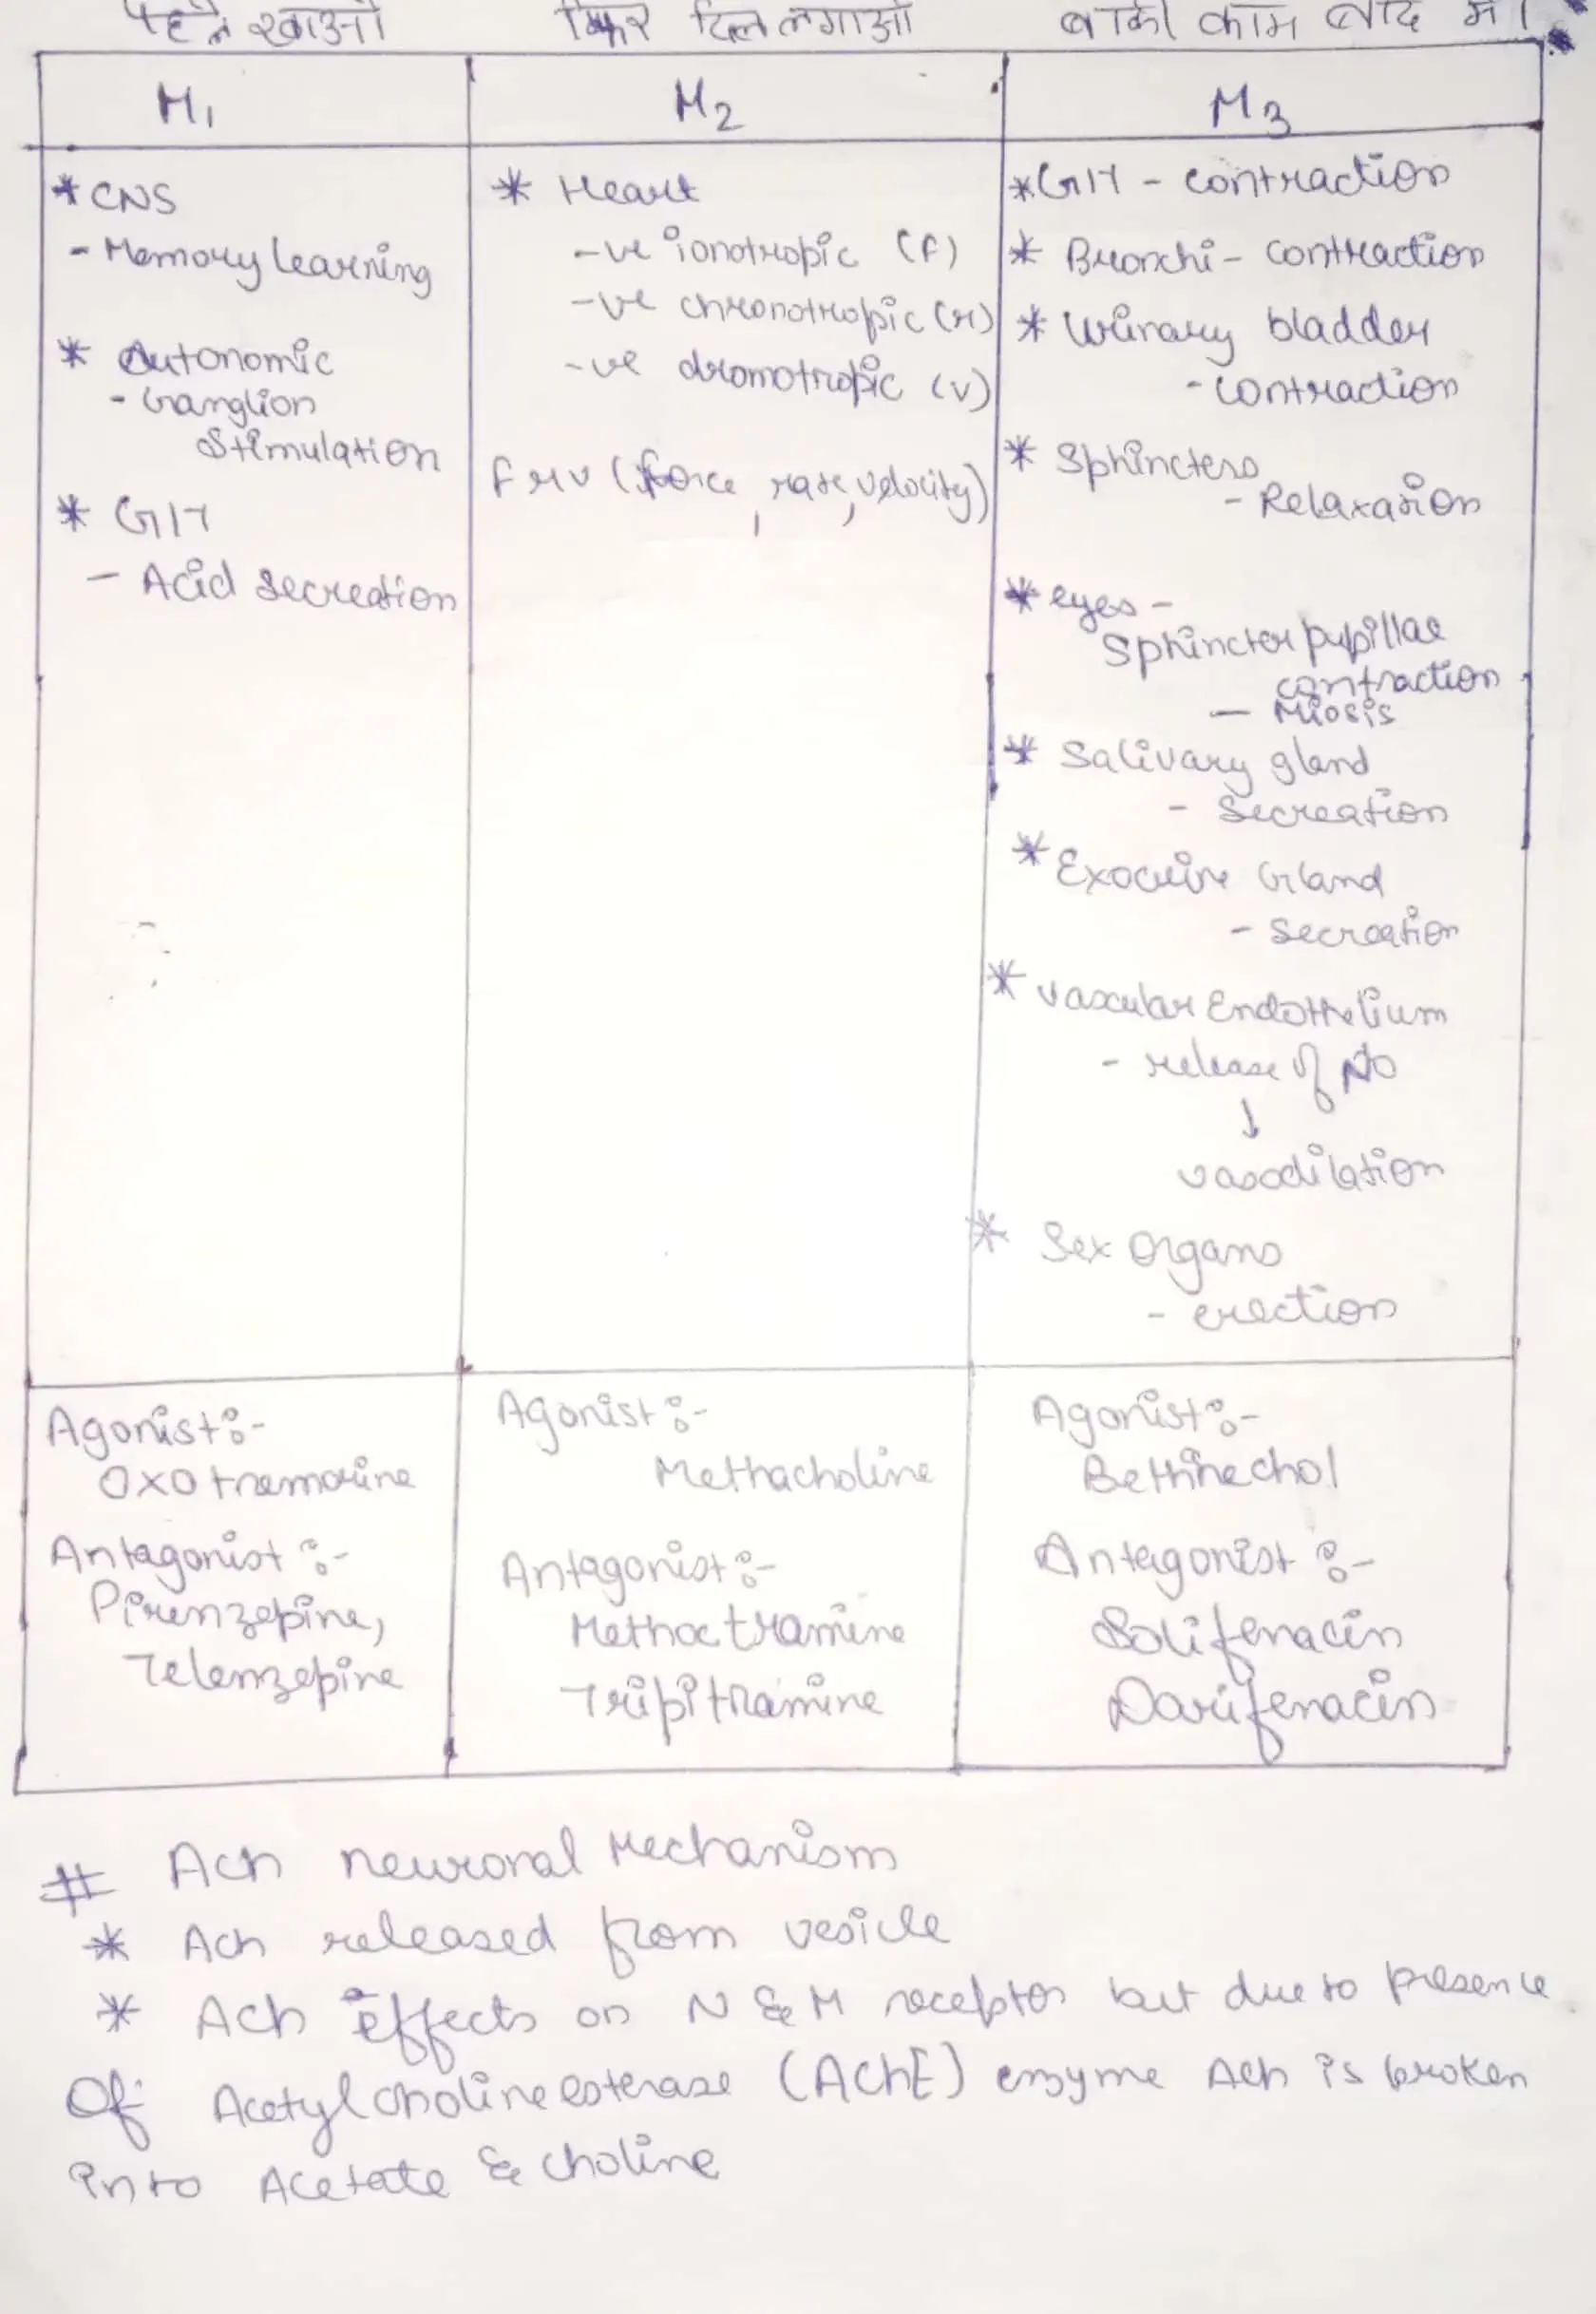 पहले खाओ फिर दिल लगाओ बाकी काम बाद में।
M1
* CNS
- Memory Learning
* Autonomic
- Ganglion
Stimulation
* GIT
- Acid Secreation
M2
* Heart
-ve ionotropic (f)
-ve chronotropic (r)
-ve dromotropic (v)
frv (force, rate, velocity)
M3
* GIT - Contraction
* Bronchi - Contraction
* Urinary bladder
- Contraction
* Sphincters
- Relaxation
* eyes -
Sphincter pupillae
contraction
- Miosis
* Salivary gland
- Secreation
* Exocrine Gland
- Secreation
* Vascular Endothelium
- release of NO
↓
vasodilation
* Sex Organs
- erection
Agonist :-
Oxotremorine
Antagonist :-
Pirenzepine,
Telenzepine
Agonist :-
Methacholine
Antagonist :-
Methoctramine
Tripitramine
Agonist :-
Bethnechol
Antagonist :-
Solifenacin
Darifenacin
# Ach neuronal Mechanism
* Ach released from vesicle
* Ach effects on N & M receptor but due to presence
Of Acetylcholineesterase (AChE) enzyme Ach is broken
into Acetate & choline